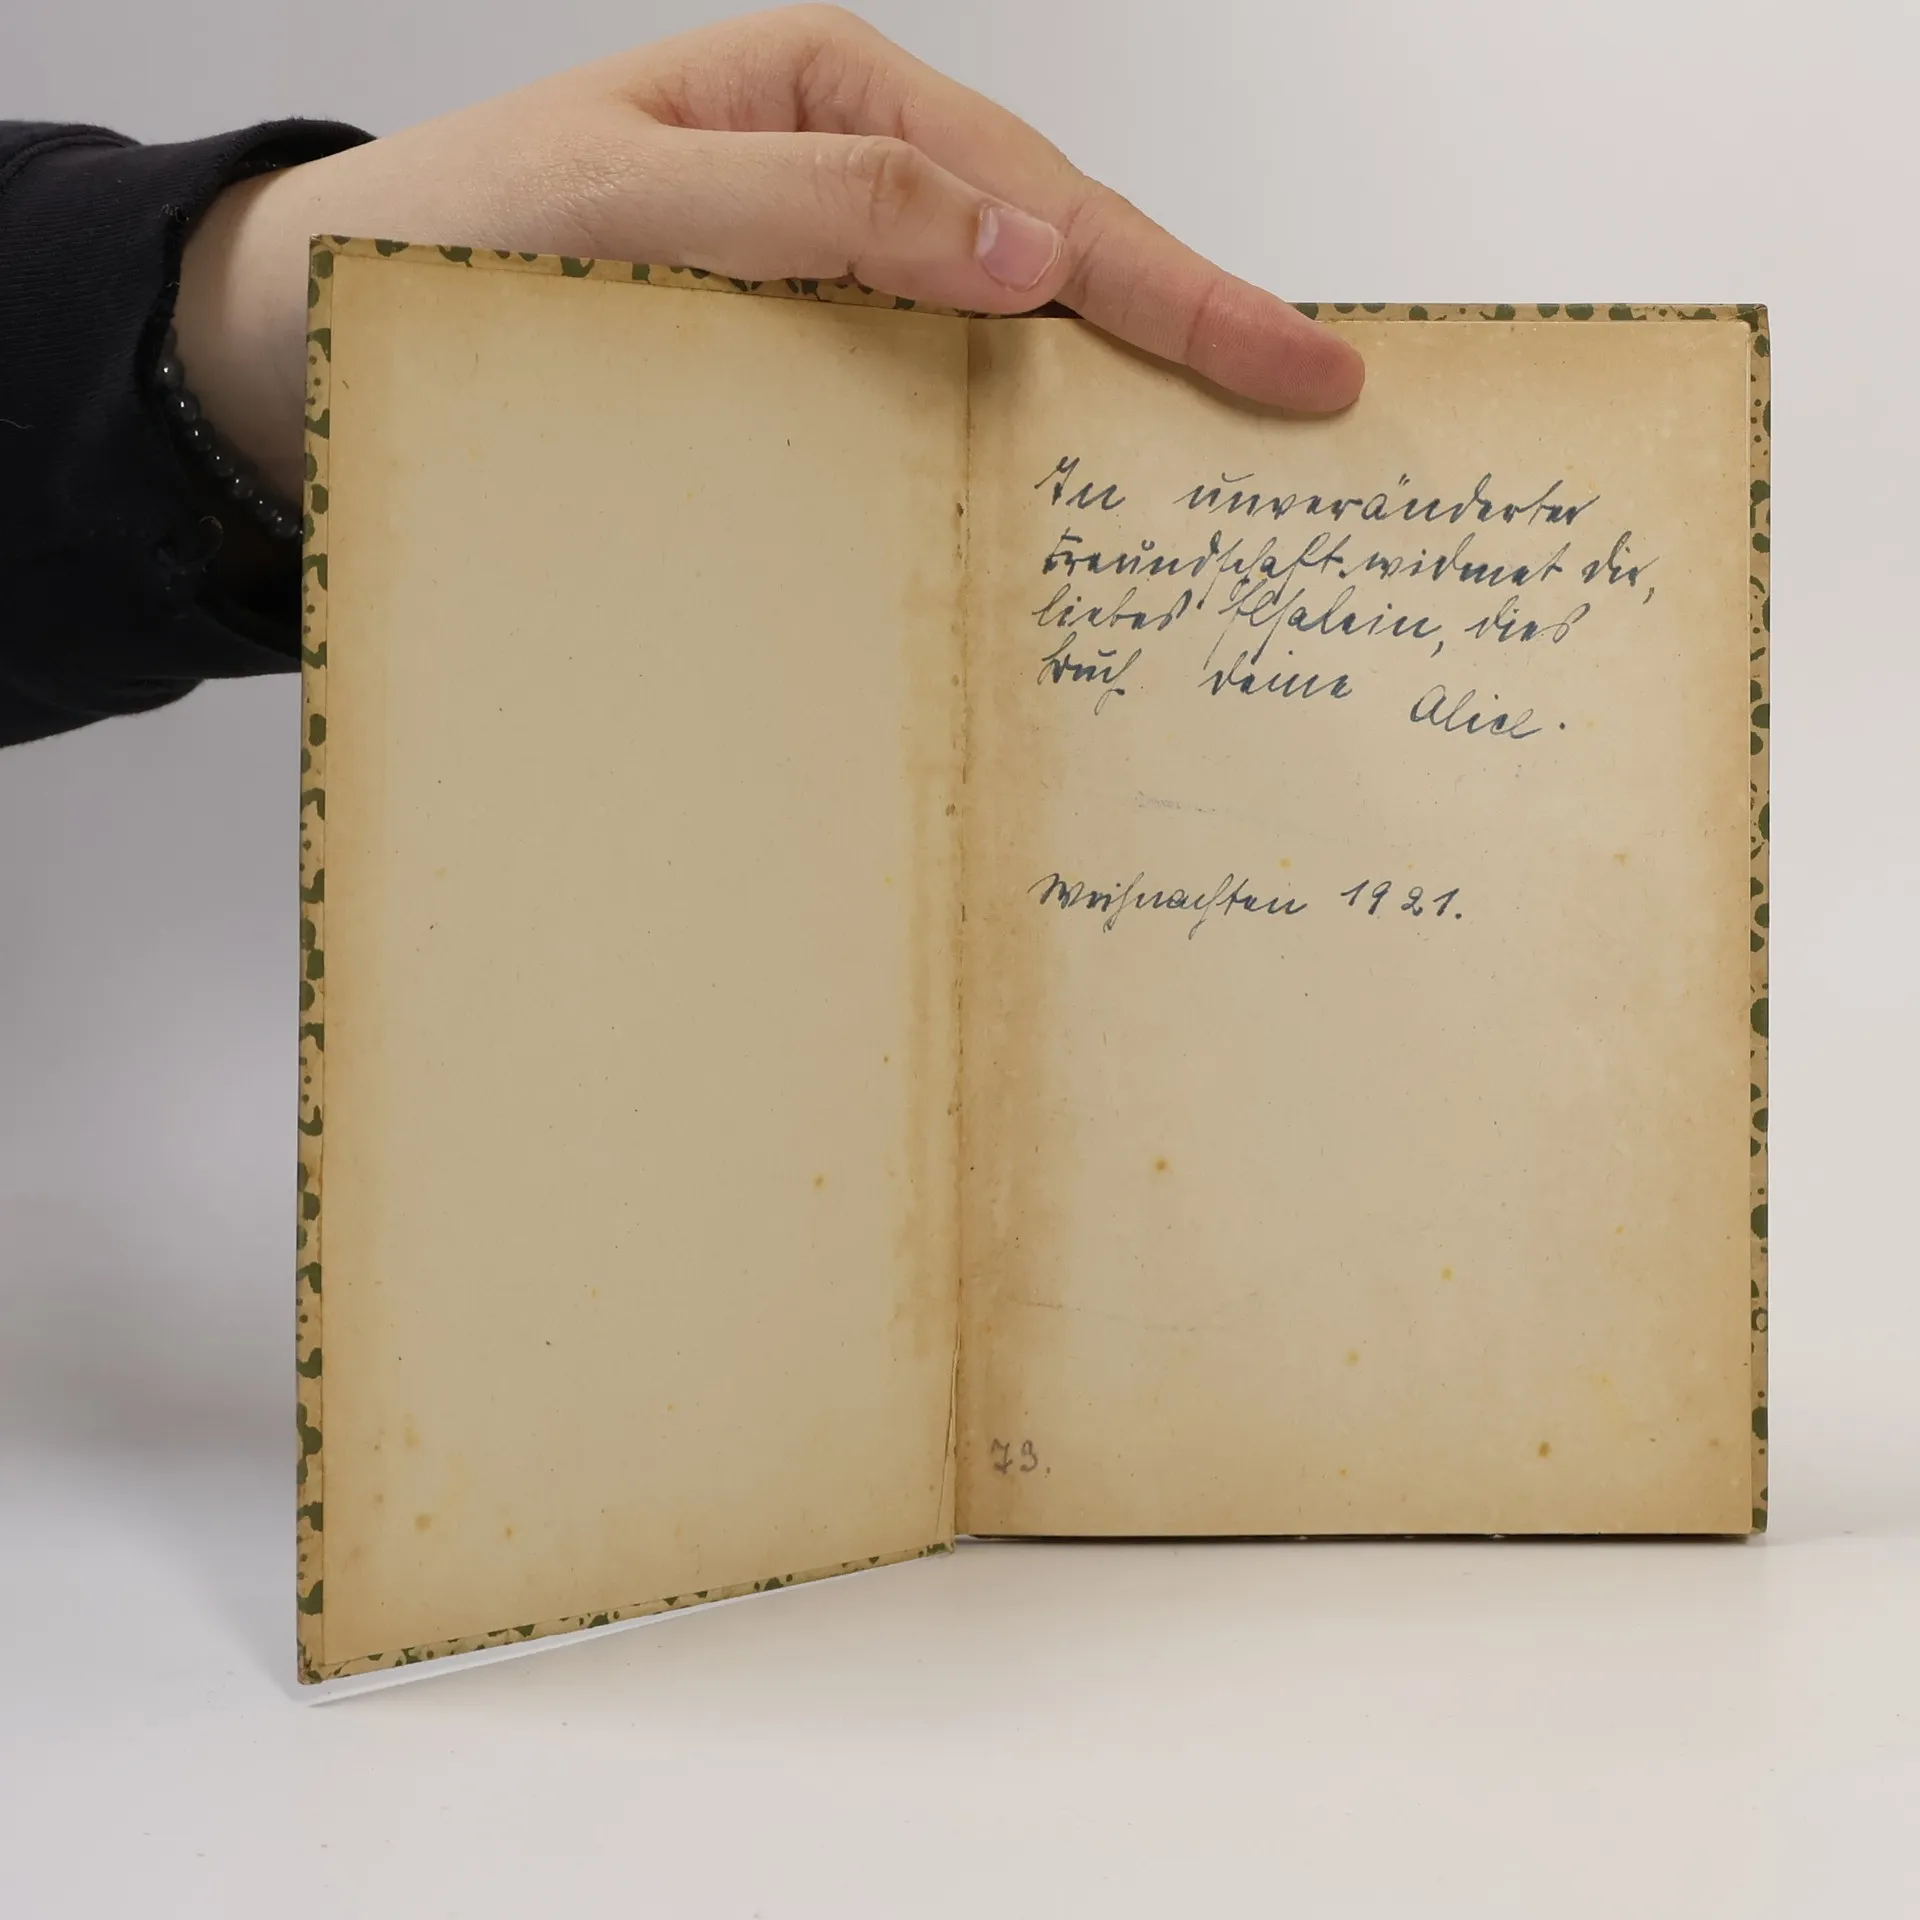 In unveränderter
Freundschaft widmet dir,
liebes Elsalein, dies
Buch deine
Alice.
Weihnachten 1921.
73.